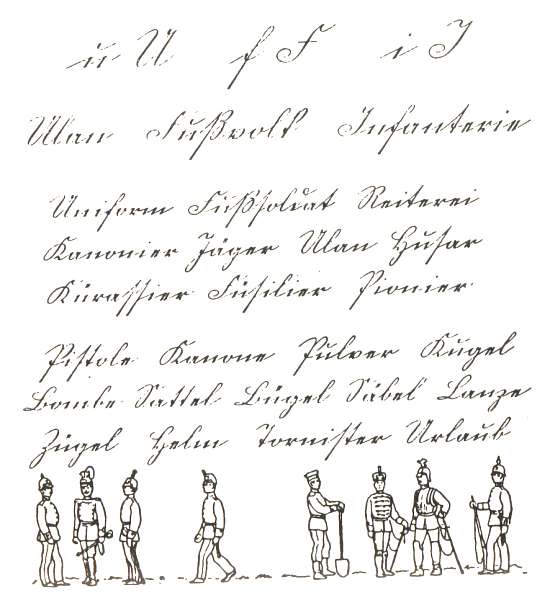 u U f F i I
Ulan Fußvolk Infanterie
Uniform Fußsoldat Reiterei
Kanonier Jäger Ulan Husar
Kürassier Füsilier Pionier
Pistole Kanone Pulver Kugel
Bombe Sattel Bügel Säbel Lanze
Zügel Helm Tornister Urlaub